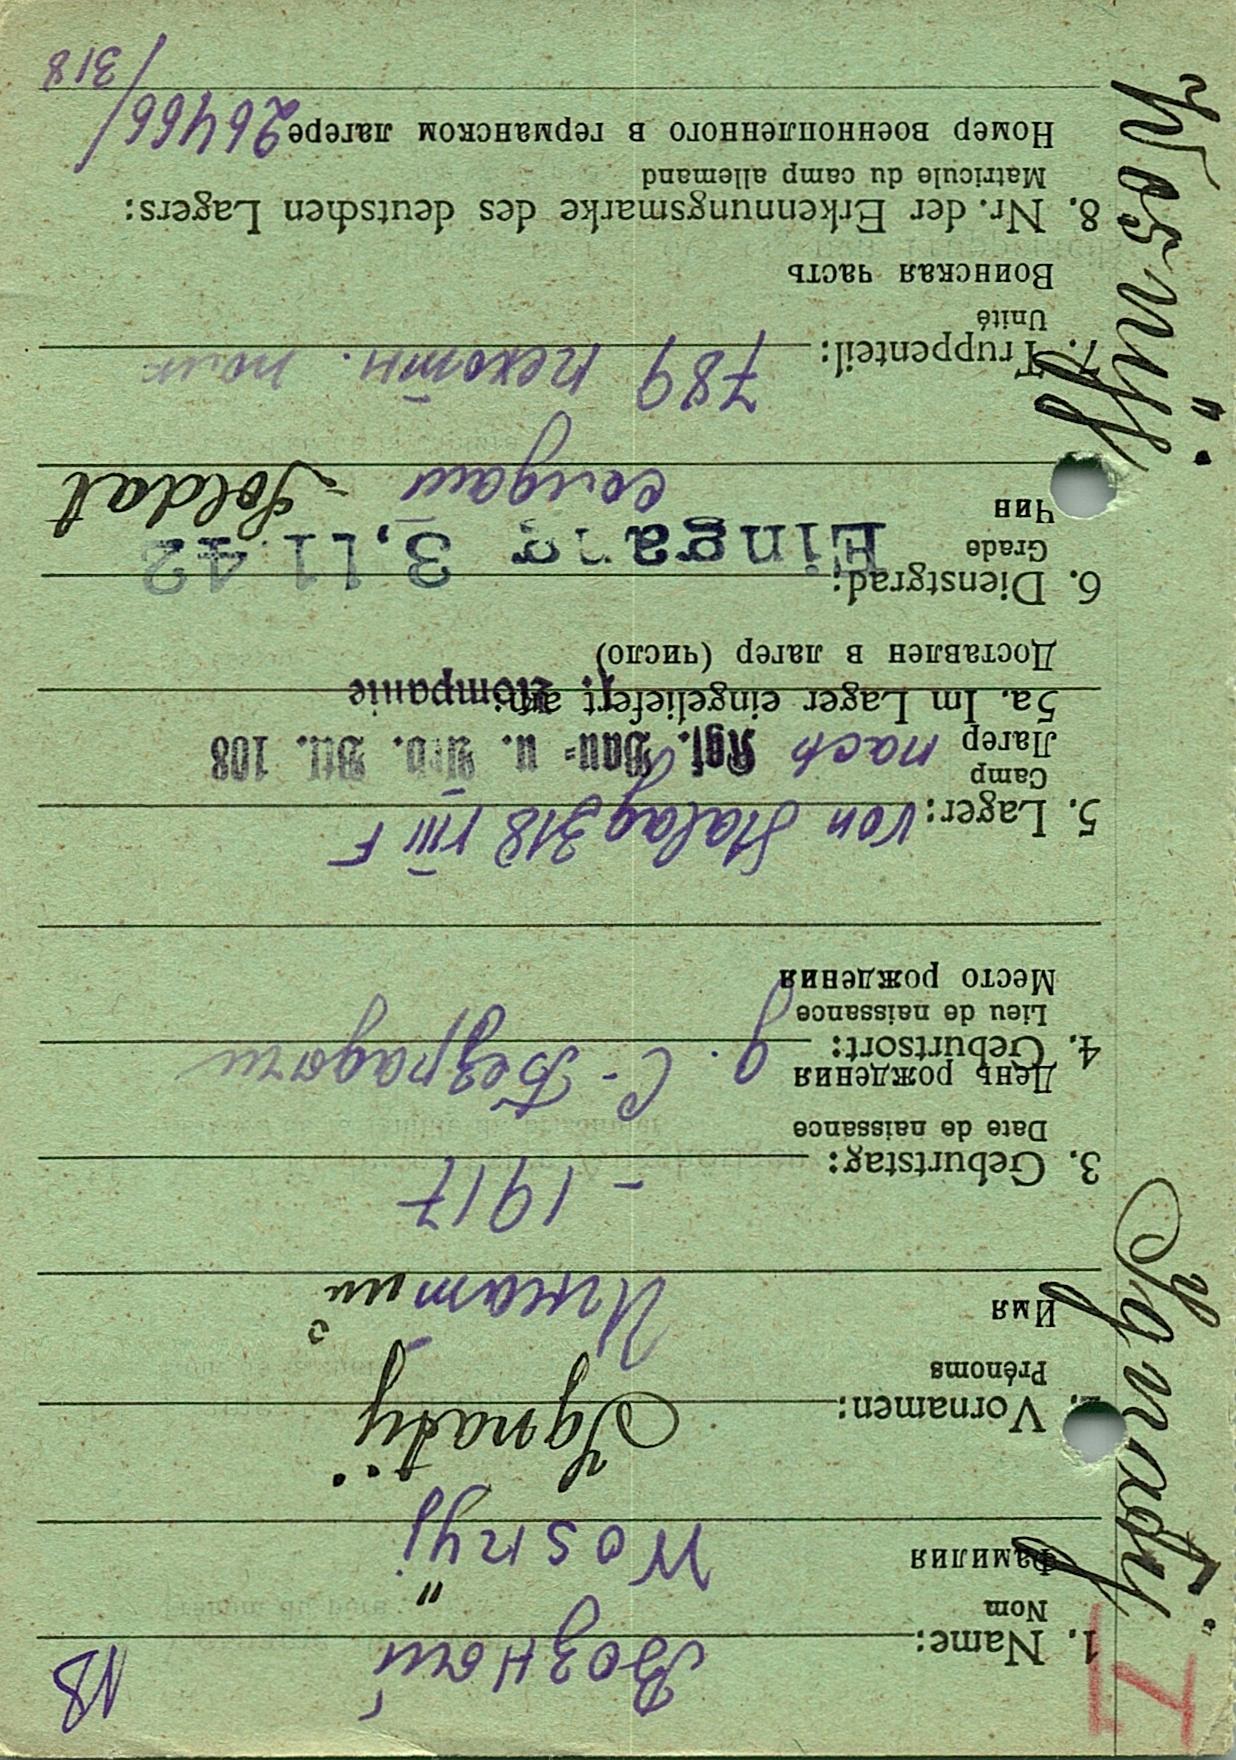 I
NB
1. Name: Возный
Nom
Wosnyj
Фамилия
2. Vornamen: Ignatij
Prénoms
Игнатий
Имя
3. Geburtstag: - 1917
Date de naissance
День рождения
4. Geburtsort: д. С-
Lieu de naissance
Место рождения
5. Lager: von Stalag 318 VIII F
Camp
Лагер nach Kgf. Bau- u. Arb. Btl. 108
5a. Im Lager eingeliefert am: Kompanie
Доставлен в лагер (число)
6. Dienstgrad: Eingang 3.11.42
Grade
Чин солдат Soldat
7. Truppenteil: 789 пехотн. полк
Unité
Воинская часть
8. Nr. der Erkennungsmarke des deutschen Lagers:
Matricule du camp allemand
Номер военнопленного в германском лагере 26466/
318
Wosnijj
Ignatij